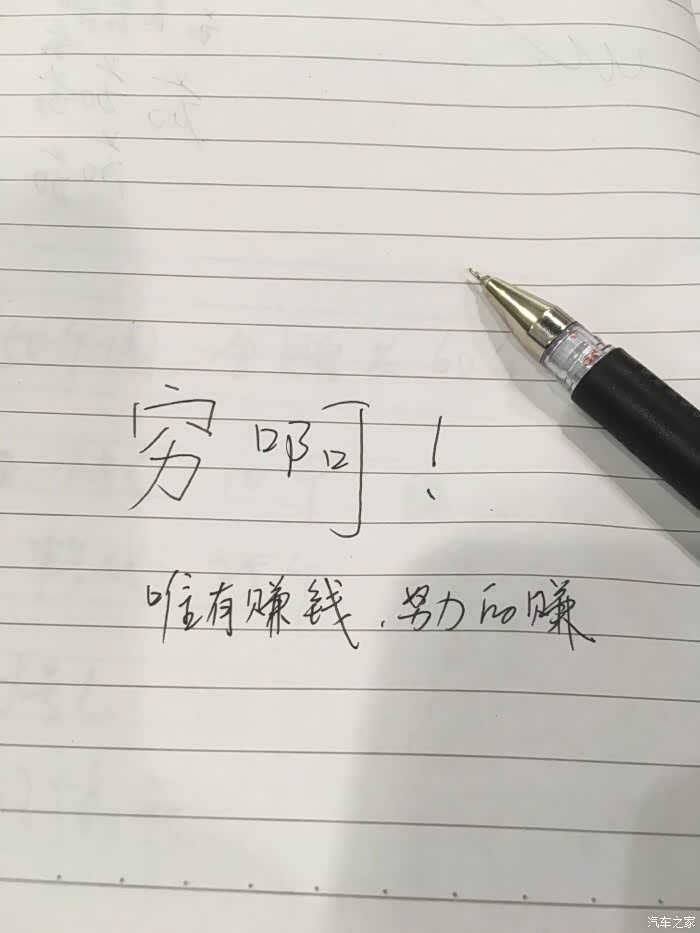 穷啊！
唯有赚钱.努力的赚
汽车之家